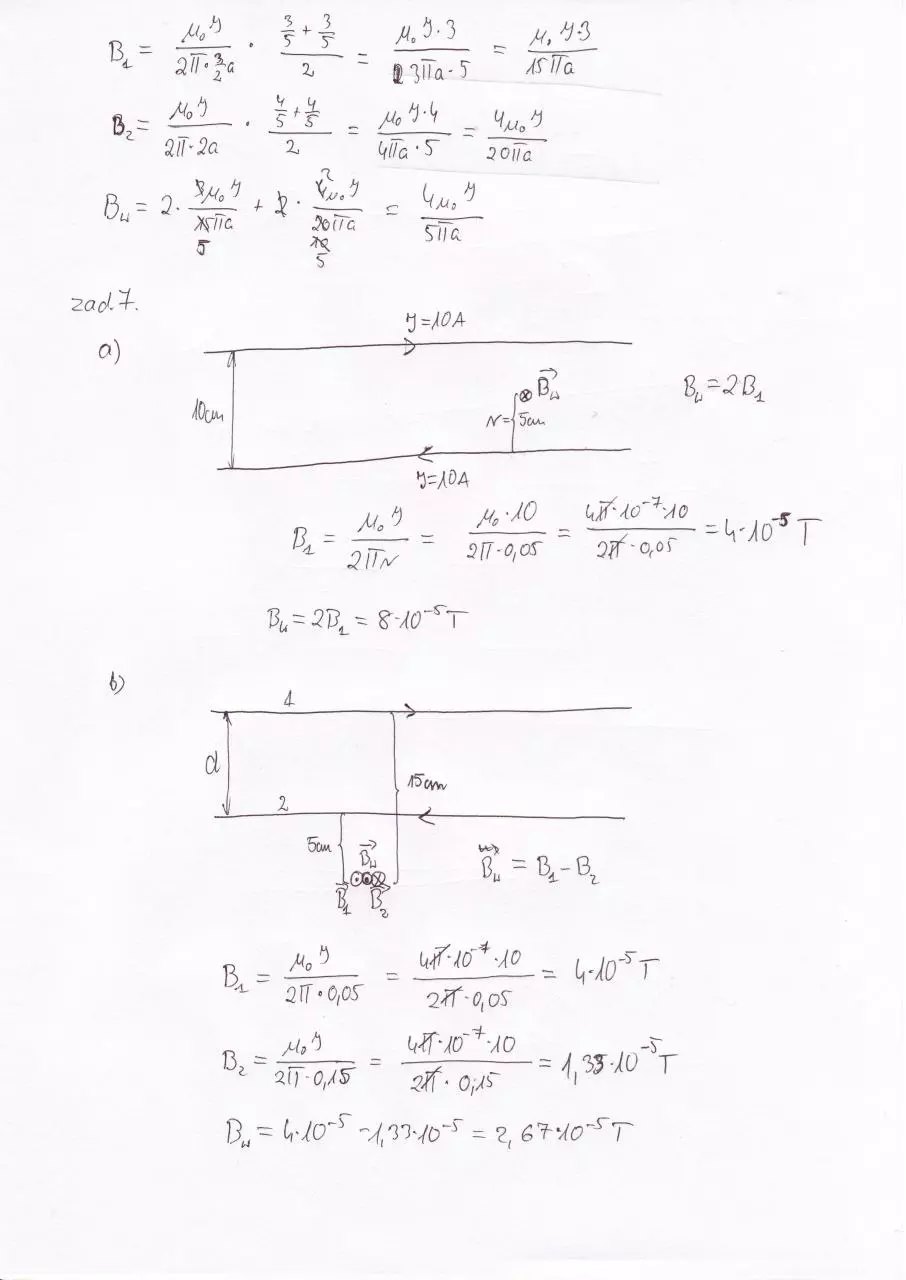 B₁ = μ₀ J / 2π · 3/2 a · (3/5 + 3/5) / 2 = μ₀ J · 3 / 3πa · 5 = μ₀ J · 3 / 15πa
B₂ = μ₀ J / 2π · 2a · (4/5 + 4/5) / 2 = μ₀ J · 4 / 4πa · 5 = 4μ₀ J / 20πa
B_w = 2 · 3μ₀ J / 15πa 5 + 2 · 4μ₀ J / 20πa 2 10 5 = 4μ₀ J / 5πa
zad. 7.
a)
J = 10A
10cm
r = 5cm
B⃗_w
B_w = 2B₁
J = 10A
B₁ = μ₀ J / 2πr = μ₀ · 10 / 2π · 0,05 = 4π · 10⁻⁷ · 10 / 2π · 0,05 = 4 · 10⁻⁵ T
B_w = 2B₁ = 8 · 10⁻⁵ T
b)
1
d
15cm
2
5cm
B⃗_w
B⃗₁ B⃗₂
B⃗_w = B₁ - B₂
B₁ = μ₀ J / 2π · 0,05 = 4π · 10⁻⁷ · 10 / 2π · 0,05 = 4 · 10⁻⁵ T
B₂ = μ₀ J / 2π · 0,15 = 4π · 10⁻⁷ · 10 / 2π · 0,15 = 1,33 · 10⁻⁵ T
B_w = 4 · 10⁻⁵ - 1,33 · 10⁻⁵ = 2,67 · 10⁻⁵ T